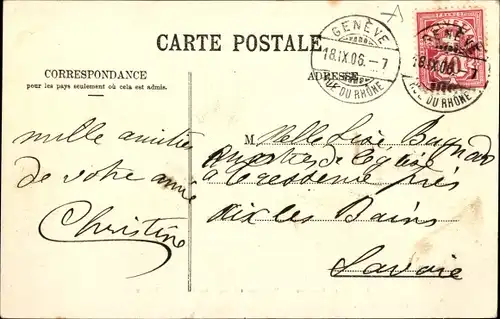 GENÈVE
18.IX.06.-7
RUE DU RHÔNE
GENÈVE
18.IX.06.-7
RUE DU RHÔNE
CARTE POSTALE
CORRESPONDANCE
pour les pays seulement où cela est admis.
ADRESSE
mille amitiés
de votre amie
Christine
M elle Lise Bugnard
quartier de l'église
à Gresseme près
Aix les Bains
Savoie